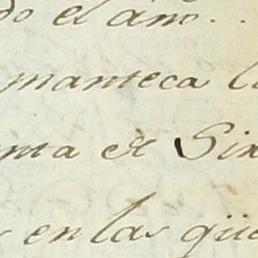 do el año..
manteca la
nta et Sin
en las que